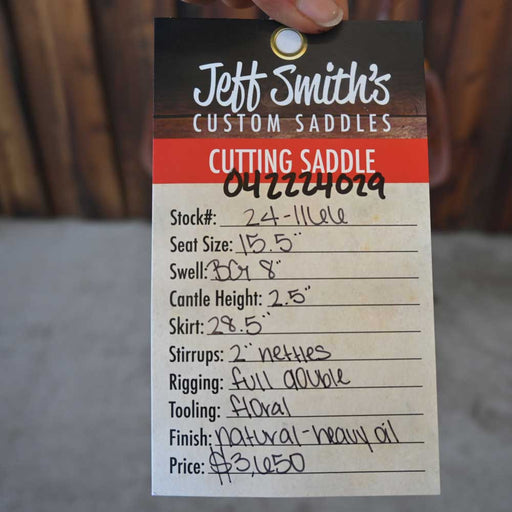 Jeff Smith's
CUSTOM SADDLES
CUTTING SADDLE
042224029
Stock#: 24-1166
Seat Size: 15.5"
Swell: BG 8"
Cantle Height: 2.5"
Skirt: 28.5"
Stirrups: 2" nettles
Rigging: full double
Tooling: floral
Finish: natural-heavy oil
Price: $3,650